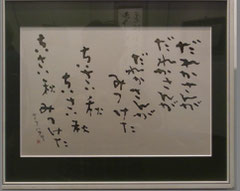 だれかさんが
だれかさんが
だれかさんが
みつけた
ちいさい秋
ちいさい秋
ちいさい秋みつけた